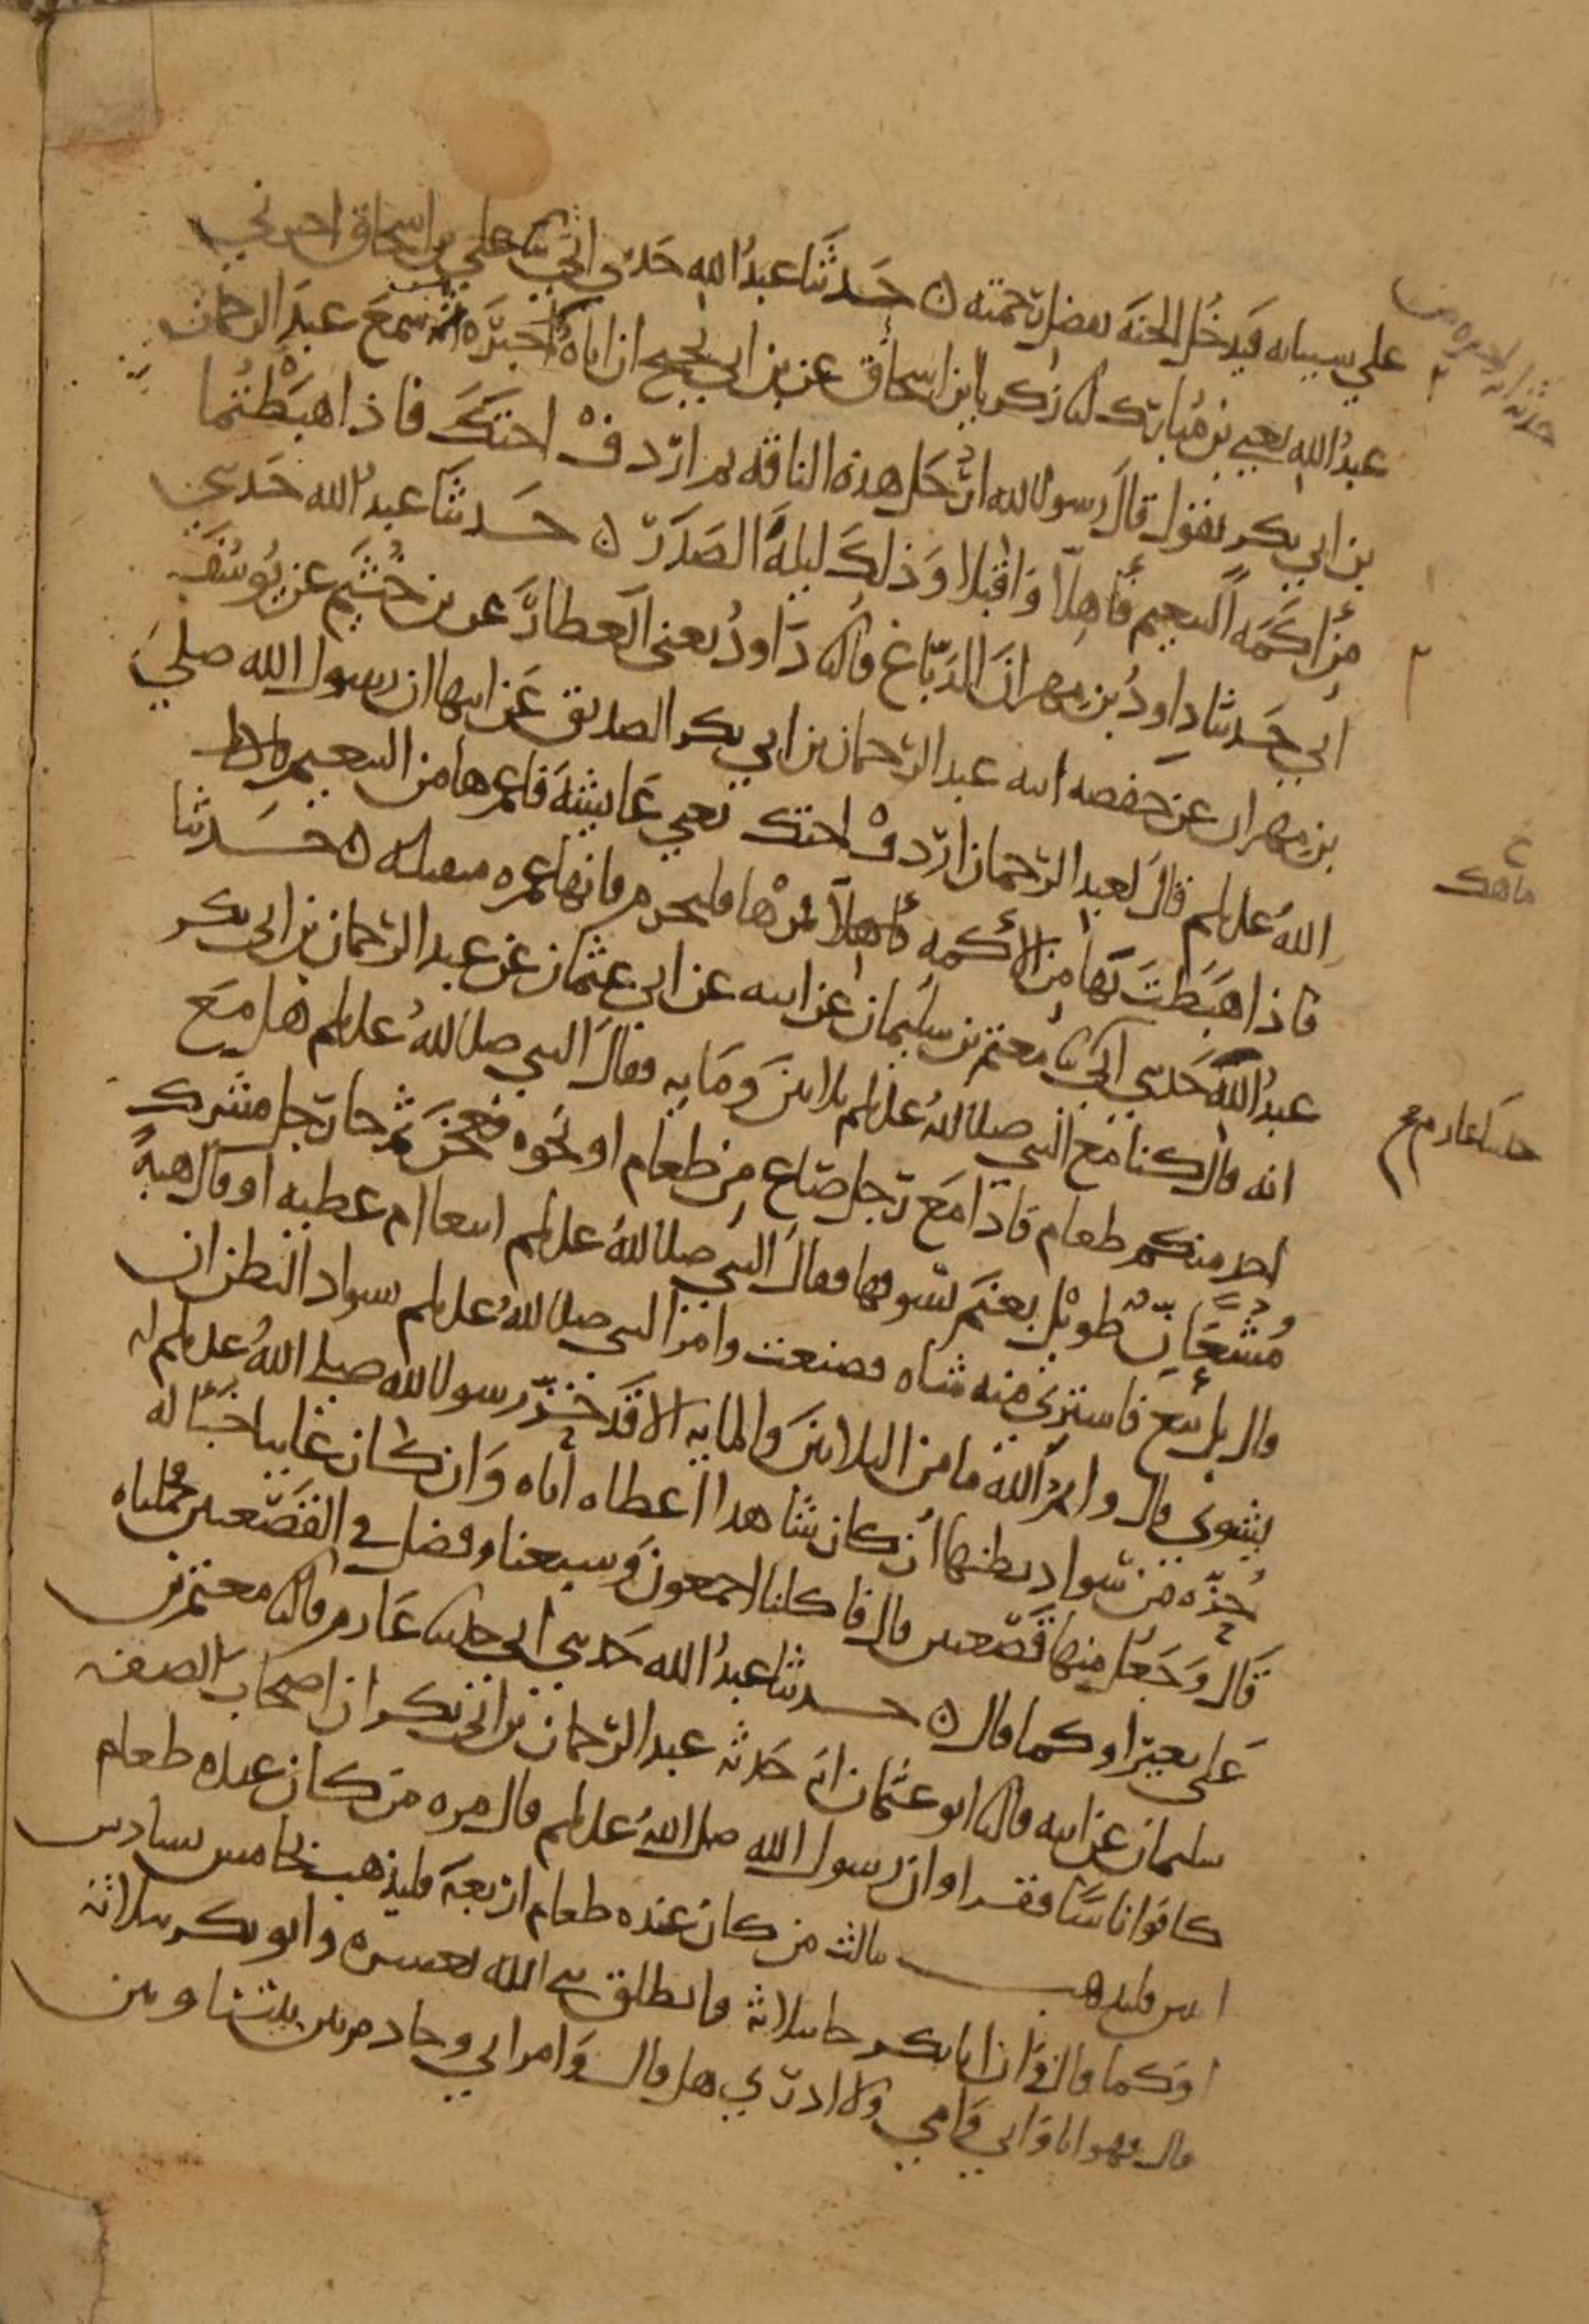 على سيياته فيدخل الجنة بفضل رحمته ه حدثنا عبد الله حدثني ابي ثنا علي بن اسحاق اخبرني
عبد الله يعني بن مبارك انا زكريا بن اسحاق عن بن ابي نجيح ان اباه اخبره انه سمع عبد الرحمان
بن ابي بكر يقول قال رسول الله ارتحل هذه الناقة ثم اردف اختك فاذا هبطتما
من اكمة التنعيم فاهلا واقبلا وذلك ليلة الصدر ه حدثنا عبد الله حدثني
ابي حدثنا داود بن مهران الدباغ قال ثنا داود يعني العطار عن بن خثيم عن يوسف
بن مهران عن حفصة ابنة عبد الرحمان بن ابي بكر الصديق عن ابيها ان رسول الله صلى
الله عليه وسلم قال لعبد الرحمان اردف اختك يعني عايشة فاعمرها من التنعيم
فاذا هبطت بها من الاكمة مرها فليحرم فانها عمرة متقبلة ه حدثنا
عبد الله حدثني ابي ثنا معتمر بن سليمان عن ابيه عن ابي عثمان عن عبد الرحمان بن ابي بكر
انه قال كنا مع النبي صلى الله عليه وسلم ثلاثين ومايه فقال النبي صلى الله عليه وسلم هل مع
احد منكم طعام فاذا مع رجل صاع من طعام او نحوه فعجن ثم جا رجل مشرك
مشعان طويل بغنم يسوقها فقال النبي صلى الله عليه وسلم ابيعا ام عطيه او قال هبة
قال بل بيع فاشترى منه شاه فصنعت وامر النبي صلى الله عليه وسلم سواد البطن ان
يشوى قال وايم الله ما من الثلاثين والمايه الا قد حز رسول الله صلى الله عليه وسلم له
حزه من سواد بطنها ان كان شاهدا اعطاه اياه وان كان غايبا خبا له
قال وجعل منها قصعتين قال فاكلنا اجمعون وشبعنا وفضل في القصعتين فحملناه
على بعير او كما قال ه حدثنا عبد الله حدثني ابي حدثنا عارم قال ثنا معتمر بن
سليمان عن ابيه قال ثنا ابو عثمان انه حدثه عبد الرحمان بن ابي بكر ان اصحاب الصفه
كانوا اناسا فقرا وان رسول الله صلى الله عليه وسلم قال مره من كان عنده طعام
اثنين فليذهب بثالث من كان عنده طعام اربعة فليذهب بخامس بسادس
او كما قال وان ابا بكر جا بثلاثة فانطلق نبي الله بعشره وابو بكر بثلاثة
قال فهو انا وابي وامي ولا ادري هل قال وامراتي وخادم بين بيتنا وبين
ماهك
حدثنا عارم